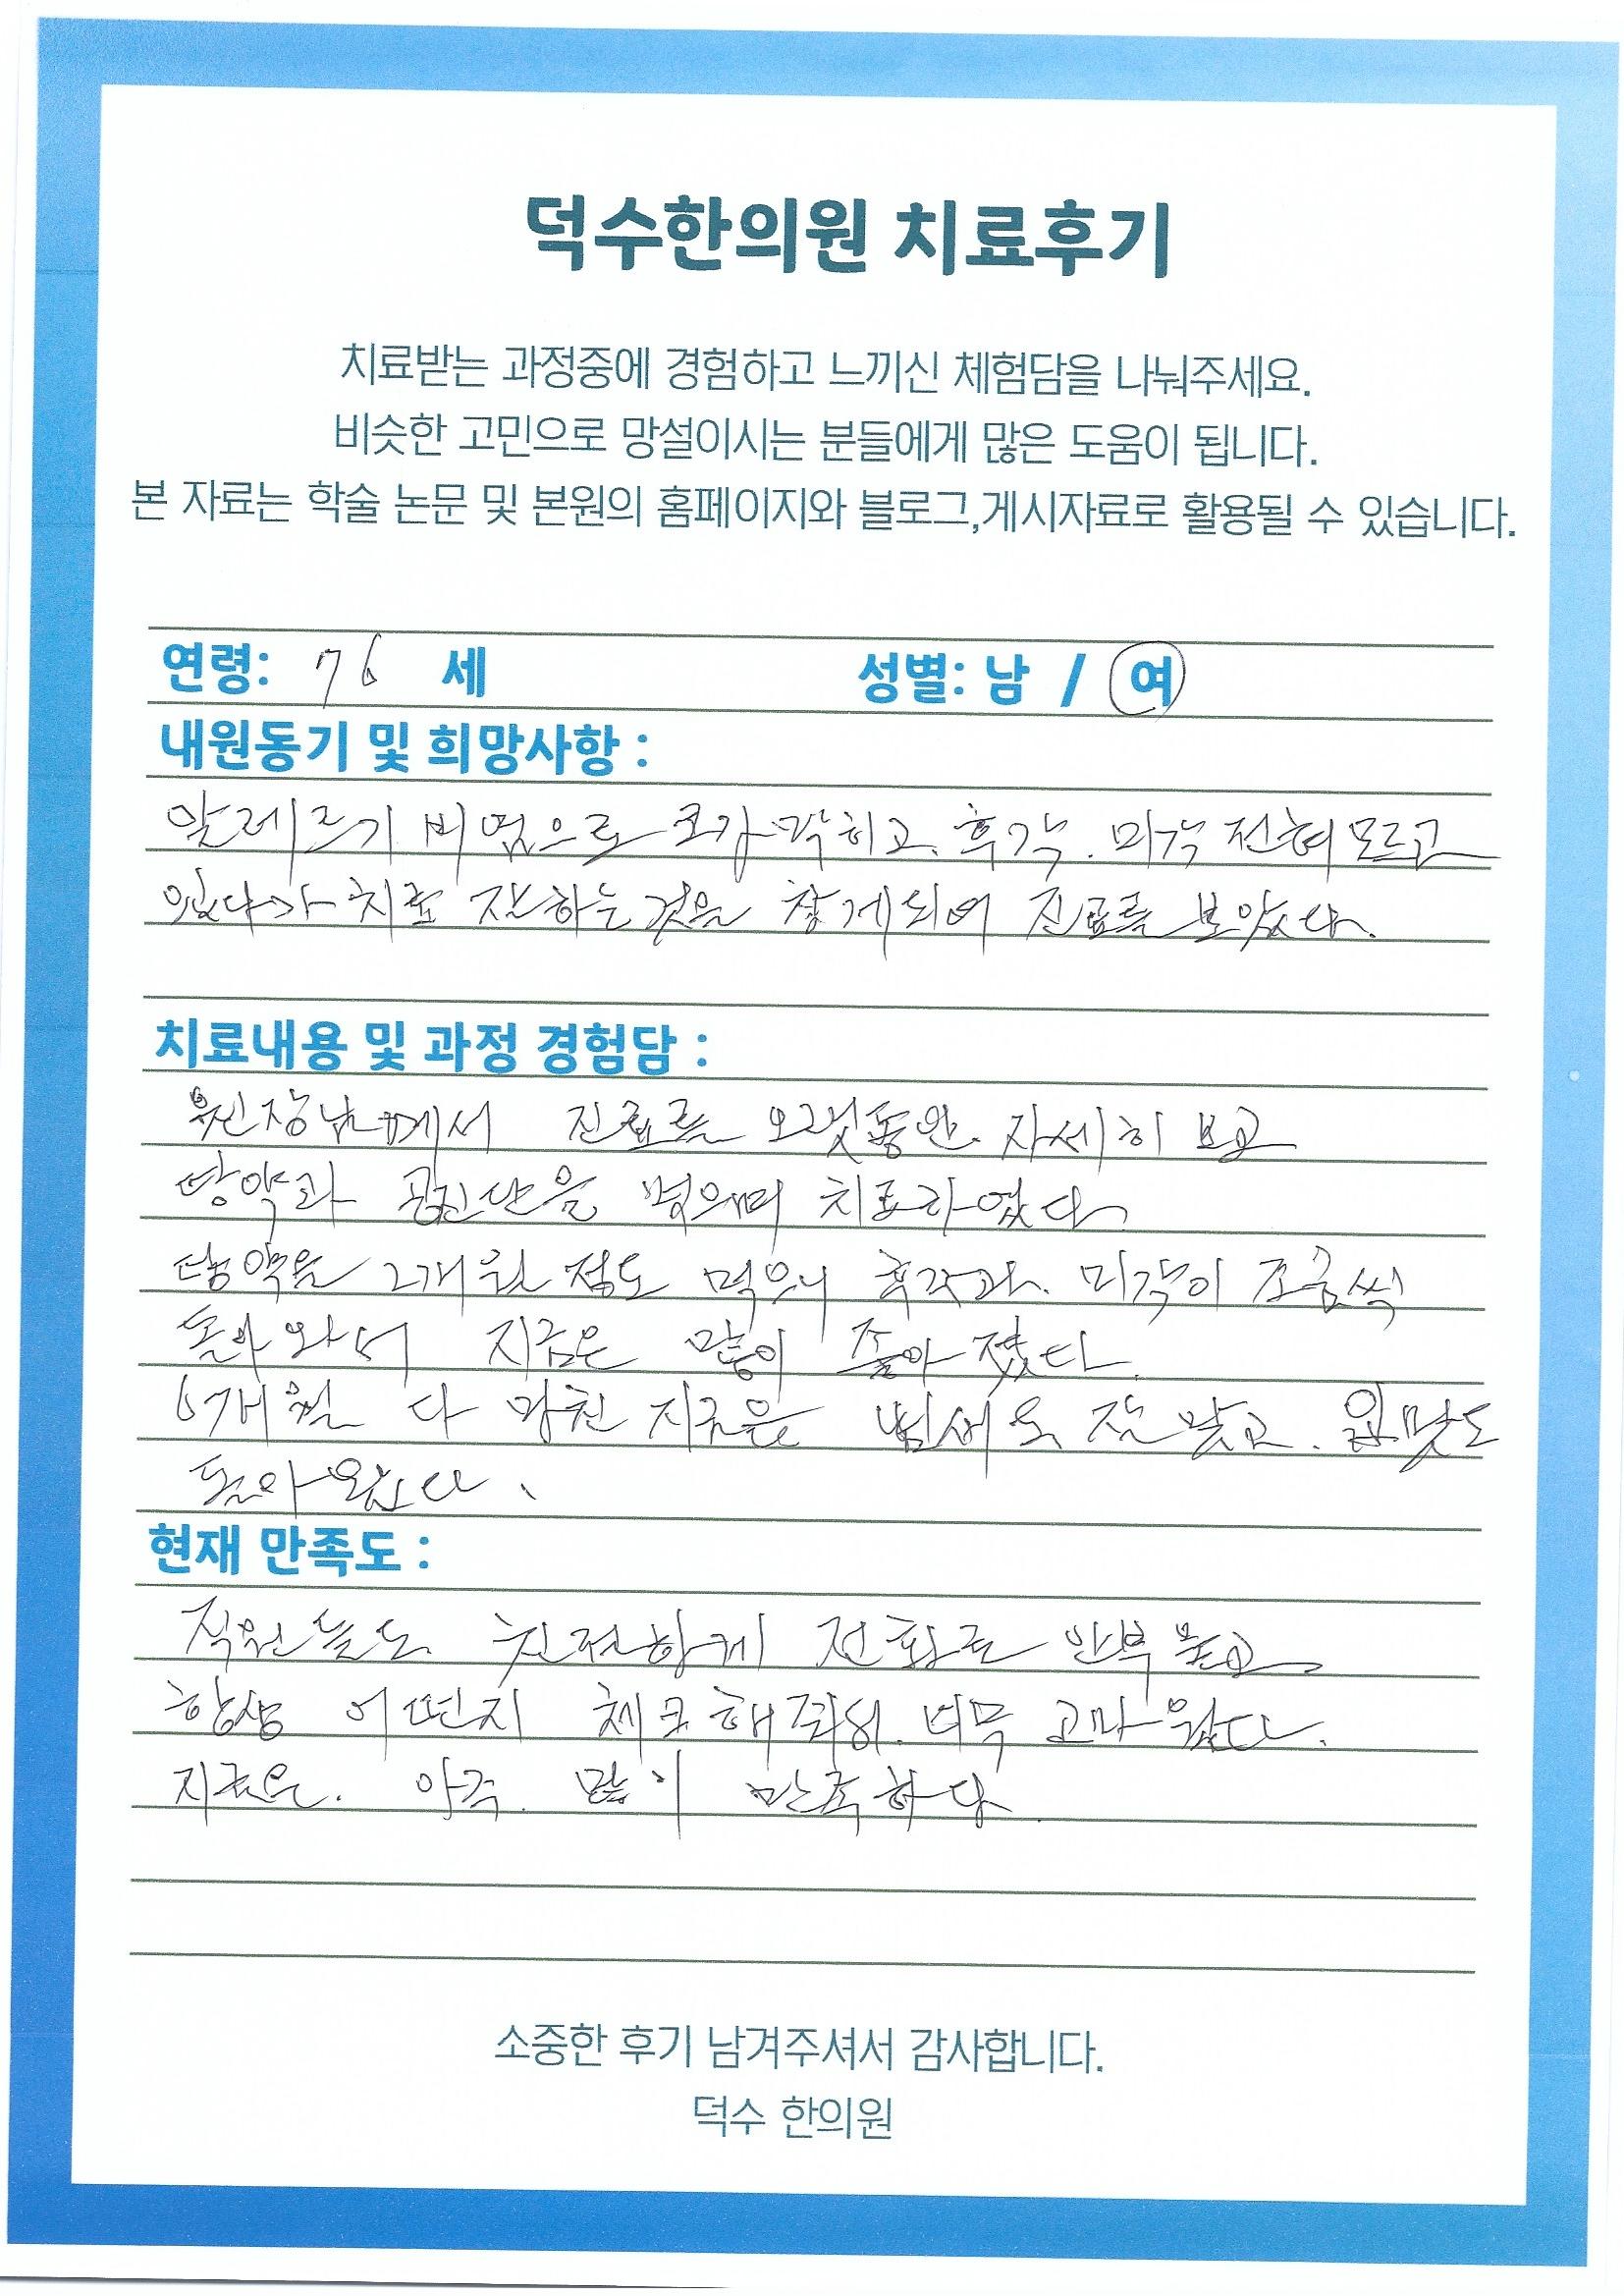 덕수한의원 치료후기
치료받는 과정중에 경험하고 느끼신 체험담을 나눠주세요.
비슷한 고민으로 망설이시는 분들에게 많은 도움이 됩니다.
본 자료는 학술 논문 및 본원의 홈페이지와 블로그,게시자료로 활용될 수 있습니다.
연령: 76 세 성별: 남 / 여
내원동기 및 희망사항 :
알레르기 비염으로 코가 막히고. 후각. 미각 전혀 모르고
있다가 치료 잘하는것을 찾게되여 진료를 보았다.
치료내용 및 과정 경험담 :
원장님께서 진료를 오랫동안 자세히 보고
탕약과 공진단을 먹으며 치료하였다
탕약을 2개월 정도 먹으니 후각과. 미각이 조금씩
돌아와서 지금은 많이 좋아졌다.
6개월 다 마친 지금은 냄새도 잘 맡고. 입맛도
돌아왔다.
현재 만족도 :
직원들도 친절하게 전화로 안부묻고
항상 어떤지 체크해줘서. 너무 고마웠다.
지금은. 아주. 많이 만족하다.
소중한 후기 남겨주셔서 감사합니다.
덕수 한의원